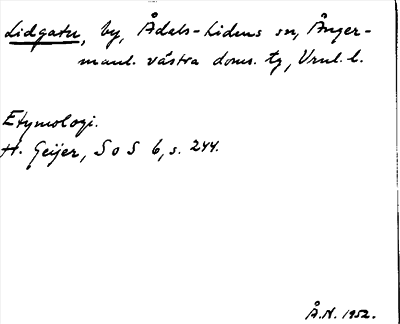 Lidgatu, by, Ådals-Lidens sn, Ånger-
manl. västra doms. tg, Vrnl. l.
Etymologi.
H. Geijer, S o S 6, s. 244.
Å.N. 1952.